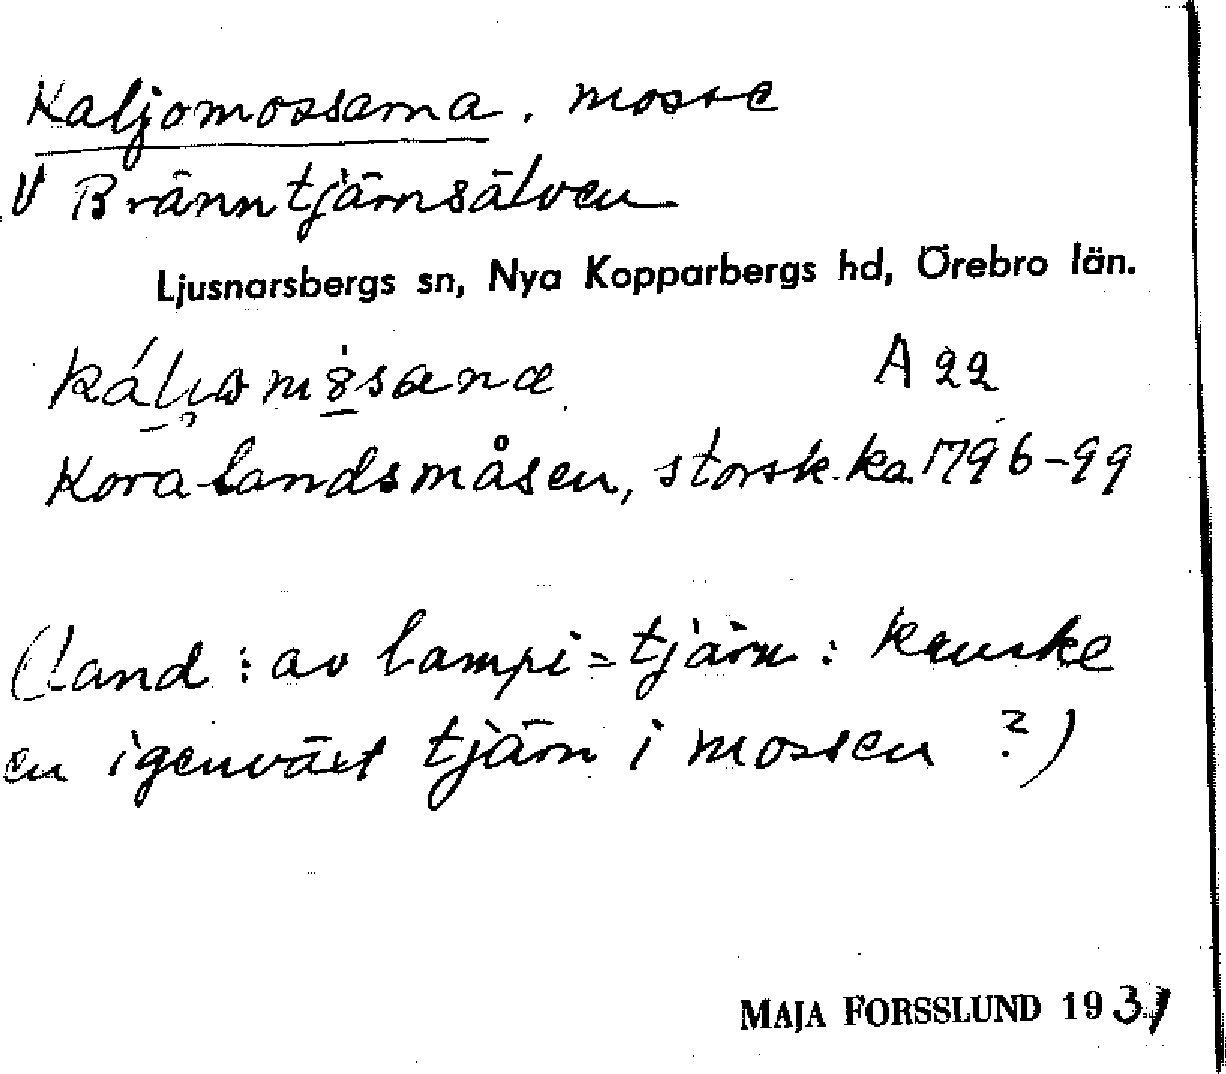 Kaljomossarna. mosse
V Bränntjärnsälven
Ljusnarsbergs sn, Nya Kopparbergs hd, Örebro län.
A 22
Koralandsmåsen, storsk.ka. 1796-99
(land : av lampi = tjärn : kanske
en igenväxt tjärn i mossen ?)
MAJA FORSSLUND 1931